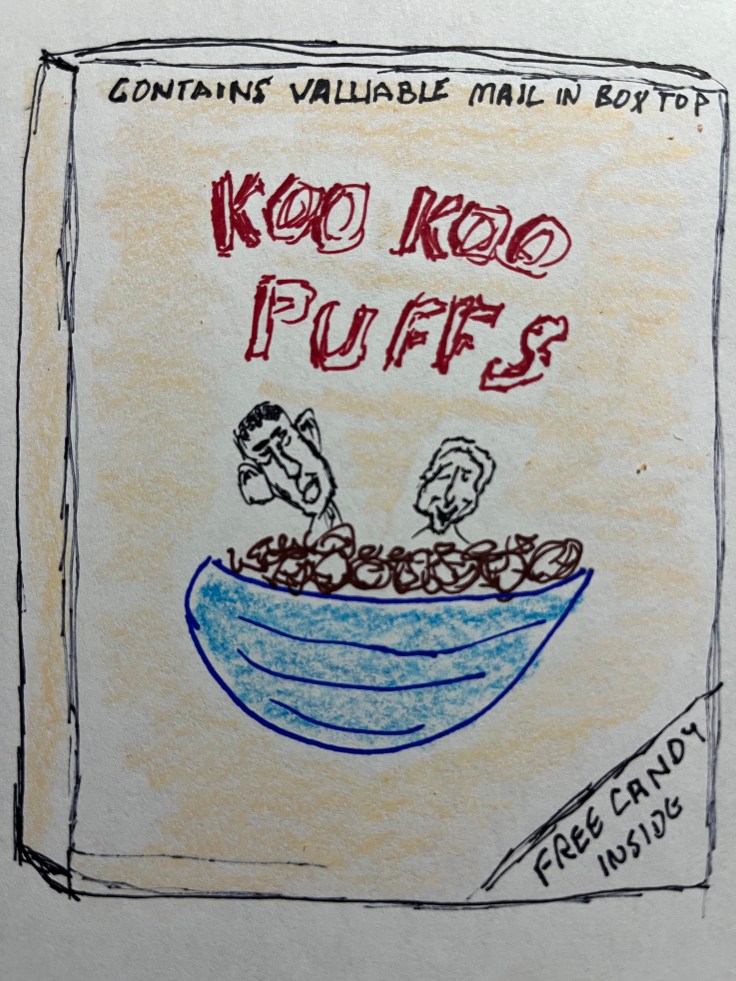 CONTAINS VALUABLE MAIL IN BOX TOP
KOO KOO
PUFFS
FREE CANDY
INSIDE